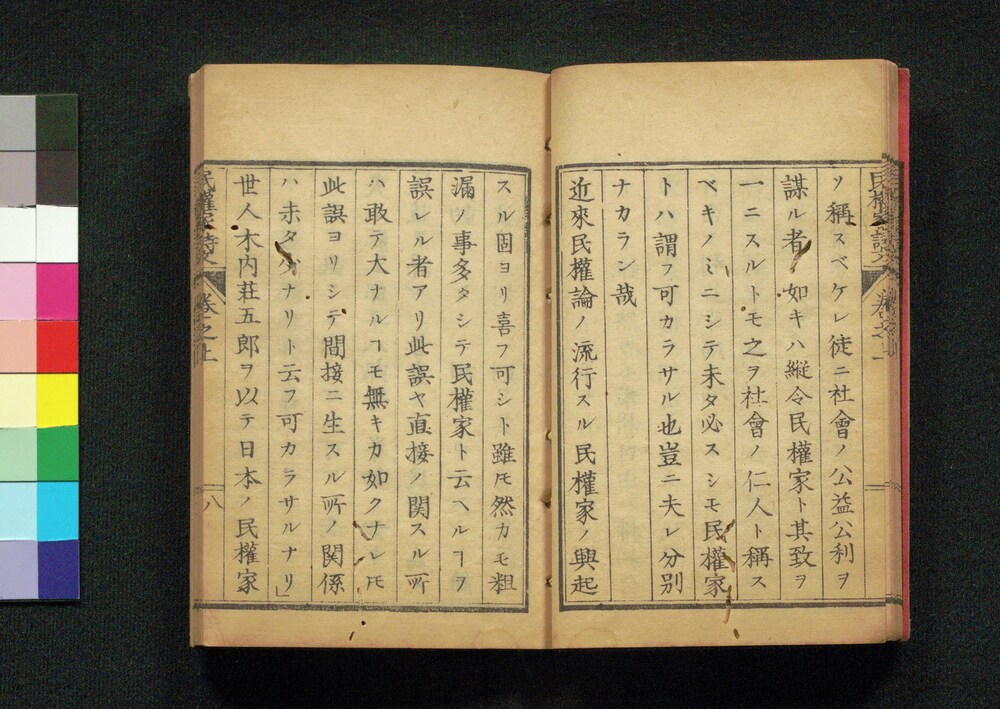 ソ稱スベケレ徒ニ社會ノ公益公利ヲ
謀ル者ノ如キハ縦令民權家ト其致ヲ
一ニスルトモ之ヲ社會ノ仁人ト稱ス
ベキノミニシテ未タ必スシモ民權家
トハ謂フ可カラサル也豈ニ夫レ分別
ナカラン哉
近來民權論ノ流行スル民權家ノ興起
スル固ヨリ喜フ可シト雖𪜈然カモ粗
漏ノ事多タシテ民權家ト云ヘルヿヲ
誤レル者アリ此誤ヤ直接ノ関スル所
ハ敢テ大ナルヿモ無キカ如クナレ𪜈
此誤ヨリシテ間接ニ生スル所ノ関係
ハ未タナリト云フ可カラサルナリ」
世人木内荘五郎ヲ以テ日本ノ民權家
卷之上
八